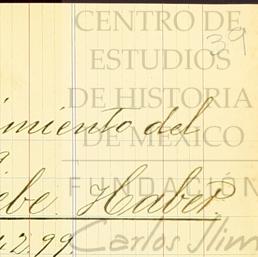 CENTRO DE
39
ESTUDIOS
DE HISTORIA
imiento del
DE MÉXICO
FUNDACIÓN
ebe. Haber.
42,99
Carlos Slim